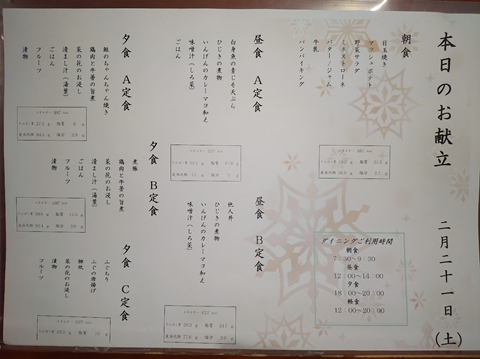 本日のお献立 二月二十一日(土)
朝食
目玉焼き
マッシュポテト
野菜サラダ
ミネストローネ
バター・ジャム
牛乳
パンバイキング
昼食 A定食
白身魚の青じそ天ぷら
ひじきの煮物
いんげんのカレーマヨ和え
味噌汁(しろ菜)
ごはん
昼食 B定食
他人丼
ひじきの煮物
いんげんのカレーマヨ和え
味噌汁(しろ菜)
夕食 A定食
鮭のちゃんちゃん焼き
鶏肉と牛蒡の旨煮
菜の花のお浸し
清まし汁(湯葉)
ごはん
フルーツ
漬物
夕食 B定食
煮穂
鶏肉と牛蒡の旨煮
菜の花のお浸し
清まし汁(湯葉)
ごはん
フルーツ
漬物
夕食 C定食
ふぐちり
ふぐの唐揚げ
雑炊
菜の花のお浸し
漬物
フルーツ
ダイニングご利用時間
朝食
7:30~9:30
昼食
12:00~14:00
夕食
18:00~20:00
軽食
12:00~20:00